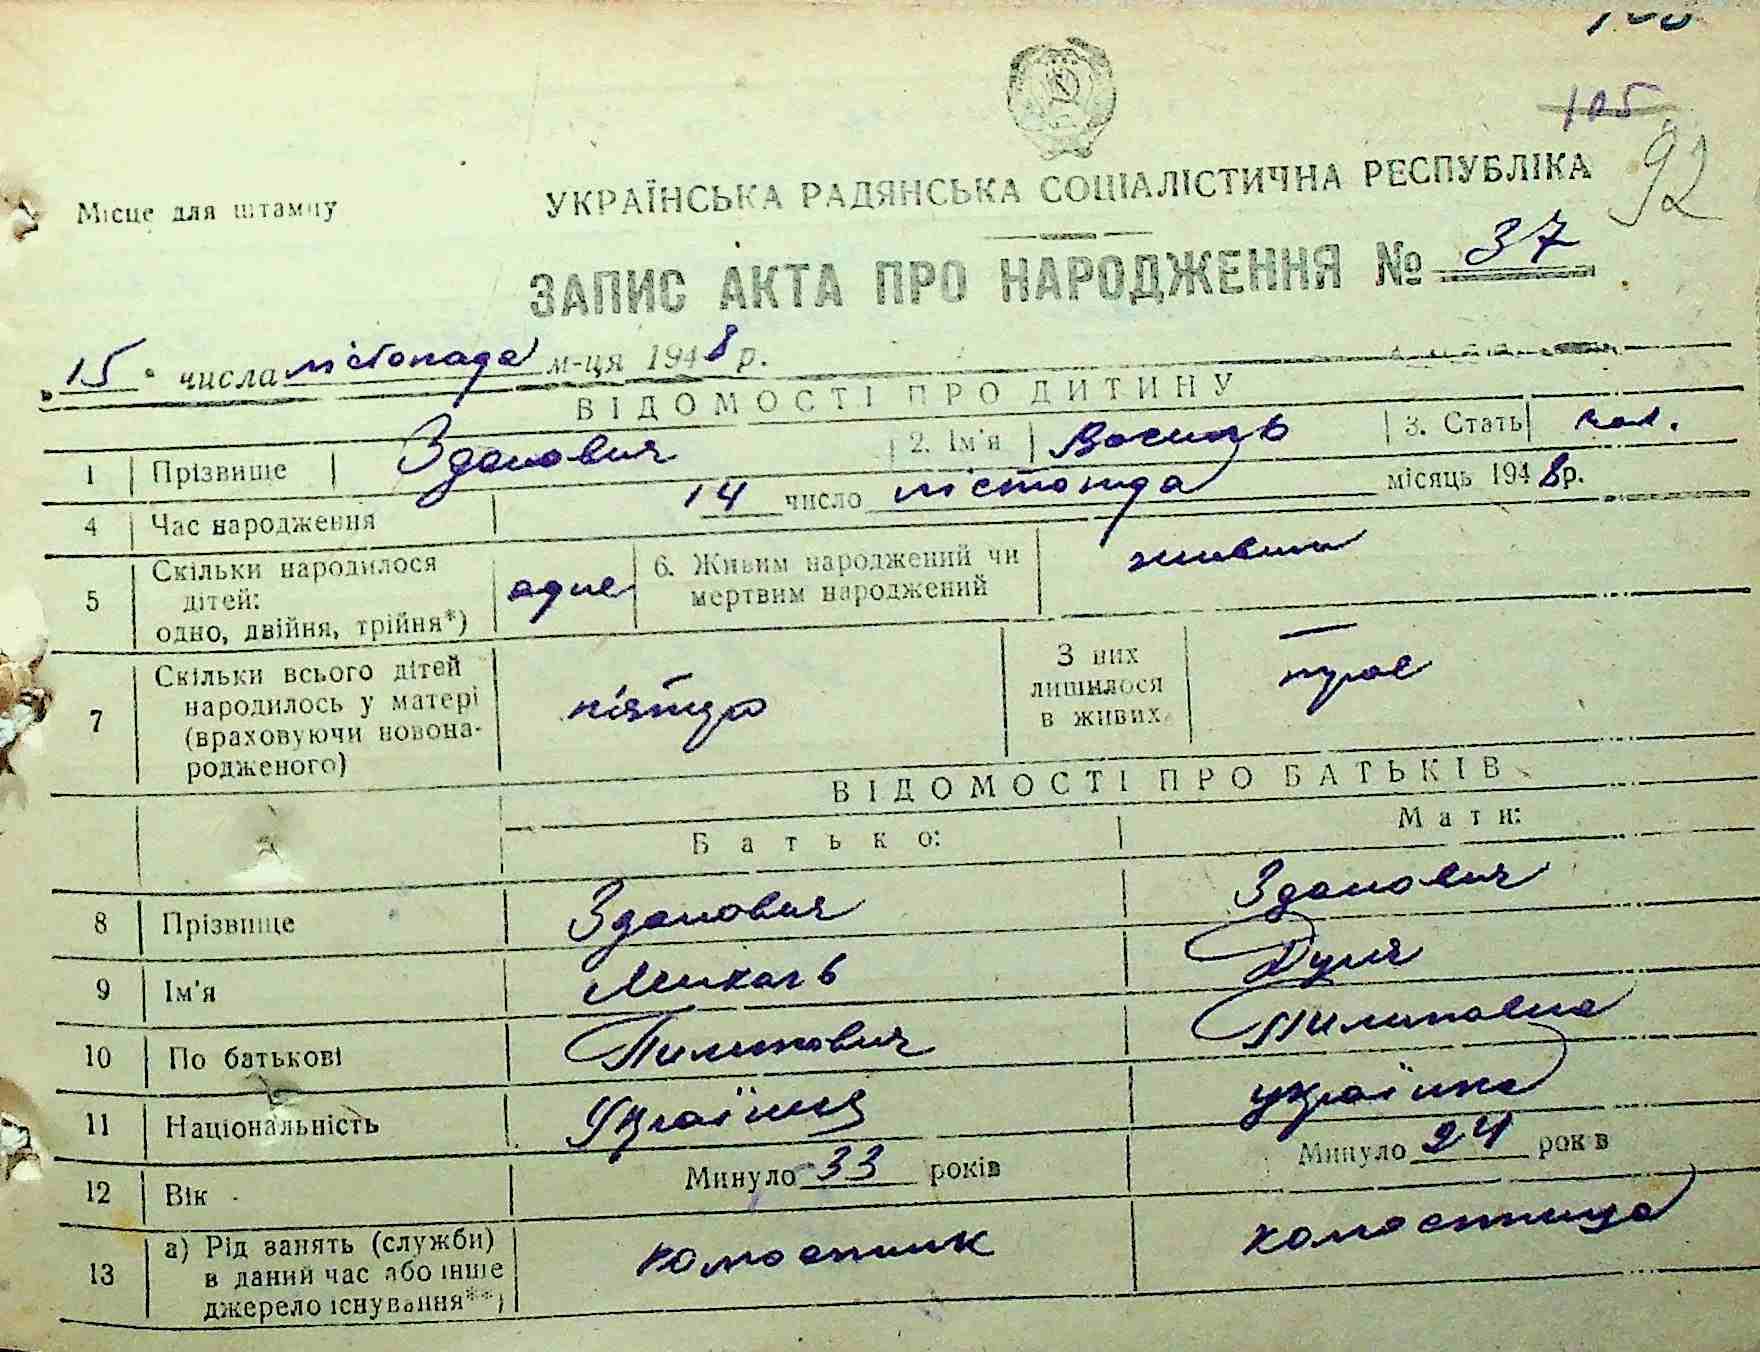 105
92
Місце для штампу
УКРАЇНСЬКА РАДЯНСЬКА СОЦІАЛІСТИЧНА РЕСПУБЛІКА
ЗАПИС АКТА ПРО НАРОДЖЕННЯ № 37
"15" числа лістопада м-ця 1948 р.
ВІДОМОСТІ ПРО ДИТИНУ
1 Прізвище Зданович 2. Ім'я Василь 3. Стать чол.
4 Час народження 14 число лістопада місяць 1948 р.
5 Скільки народилося дітей: одно, двійня, трійня*) одне 6. Живим народжений чи мертвим народжений живим
7 Скільки всього дітей народилось у матері (враховуючи новонародженого) З них лишилося в живих
ВІДОМОСТІ ПРО БАТЬКІВ
Батько: Мати:
8 Прізвище Зданович Зданович
9 Ім'я Михаль
10 По батькові Пилипович Пилиповна
11 Національність Українец українка
12 Вік Минуло 33 років Минуло 24 років
13 а) Рід занять (служби) в даний час або інше джерело існування**)